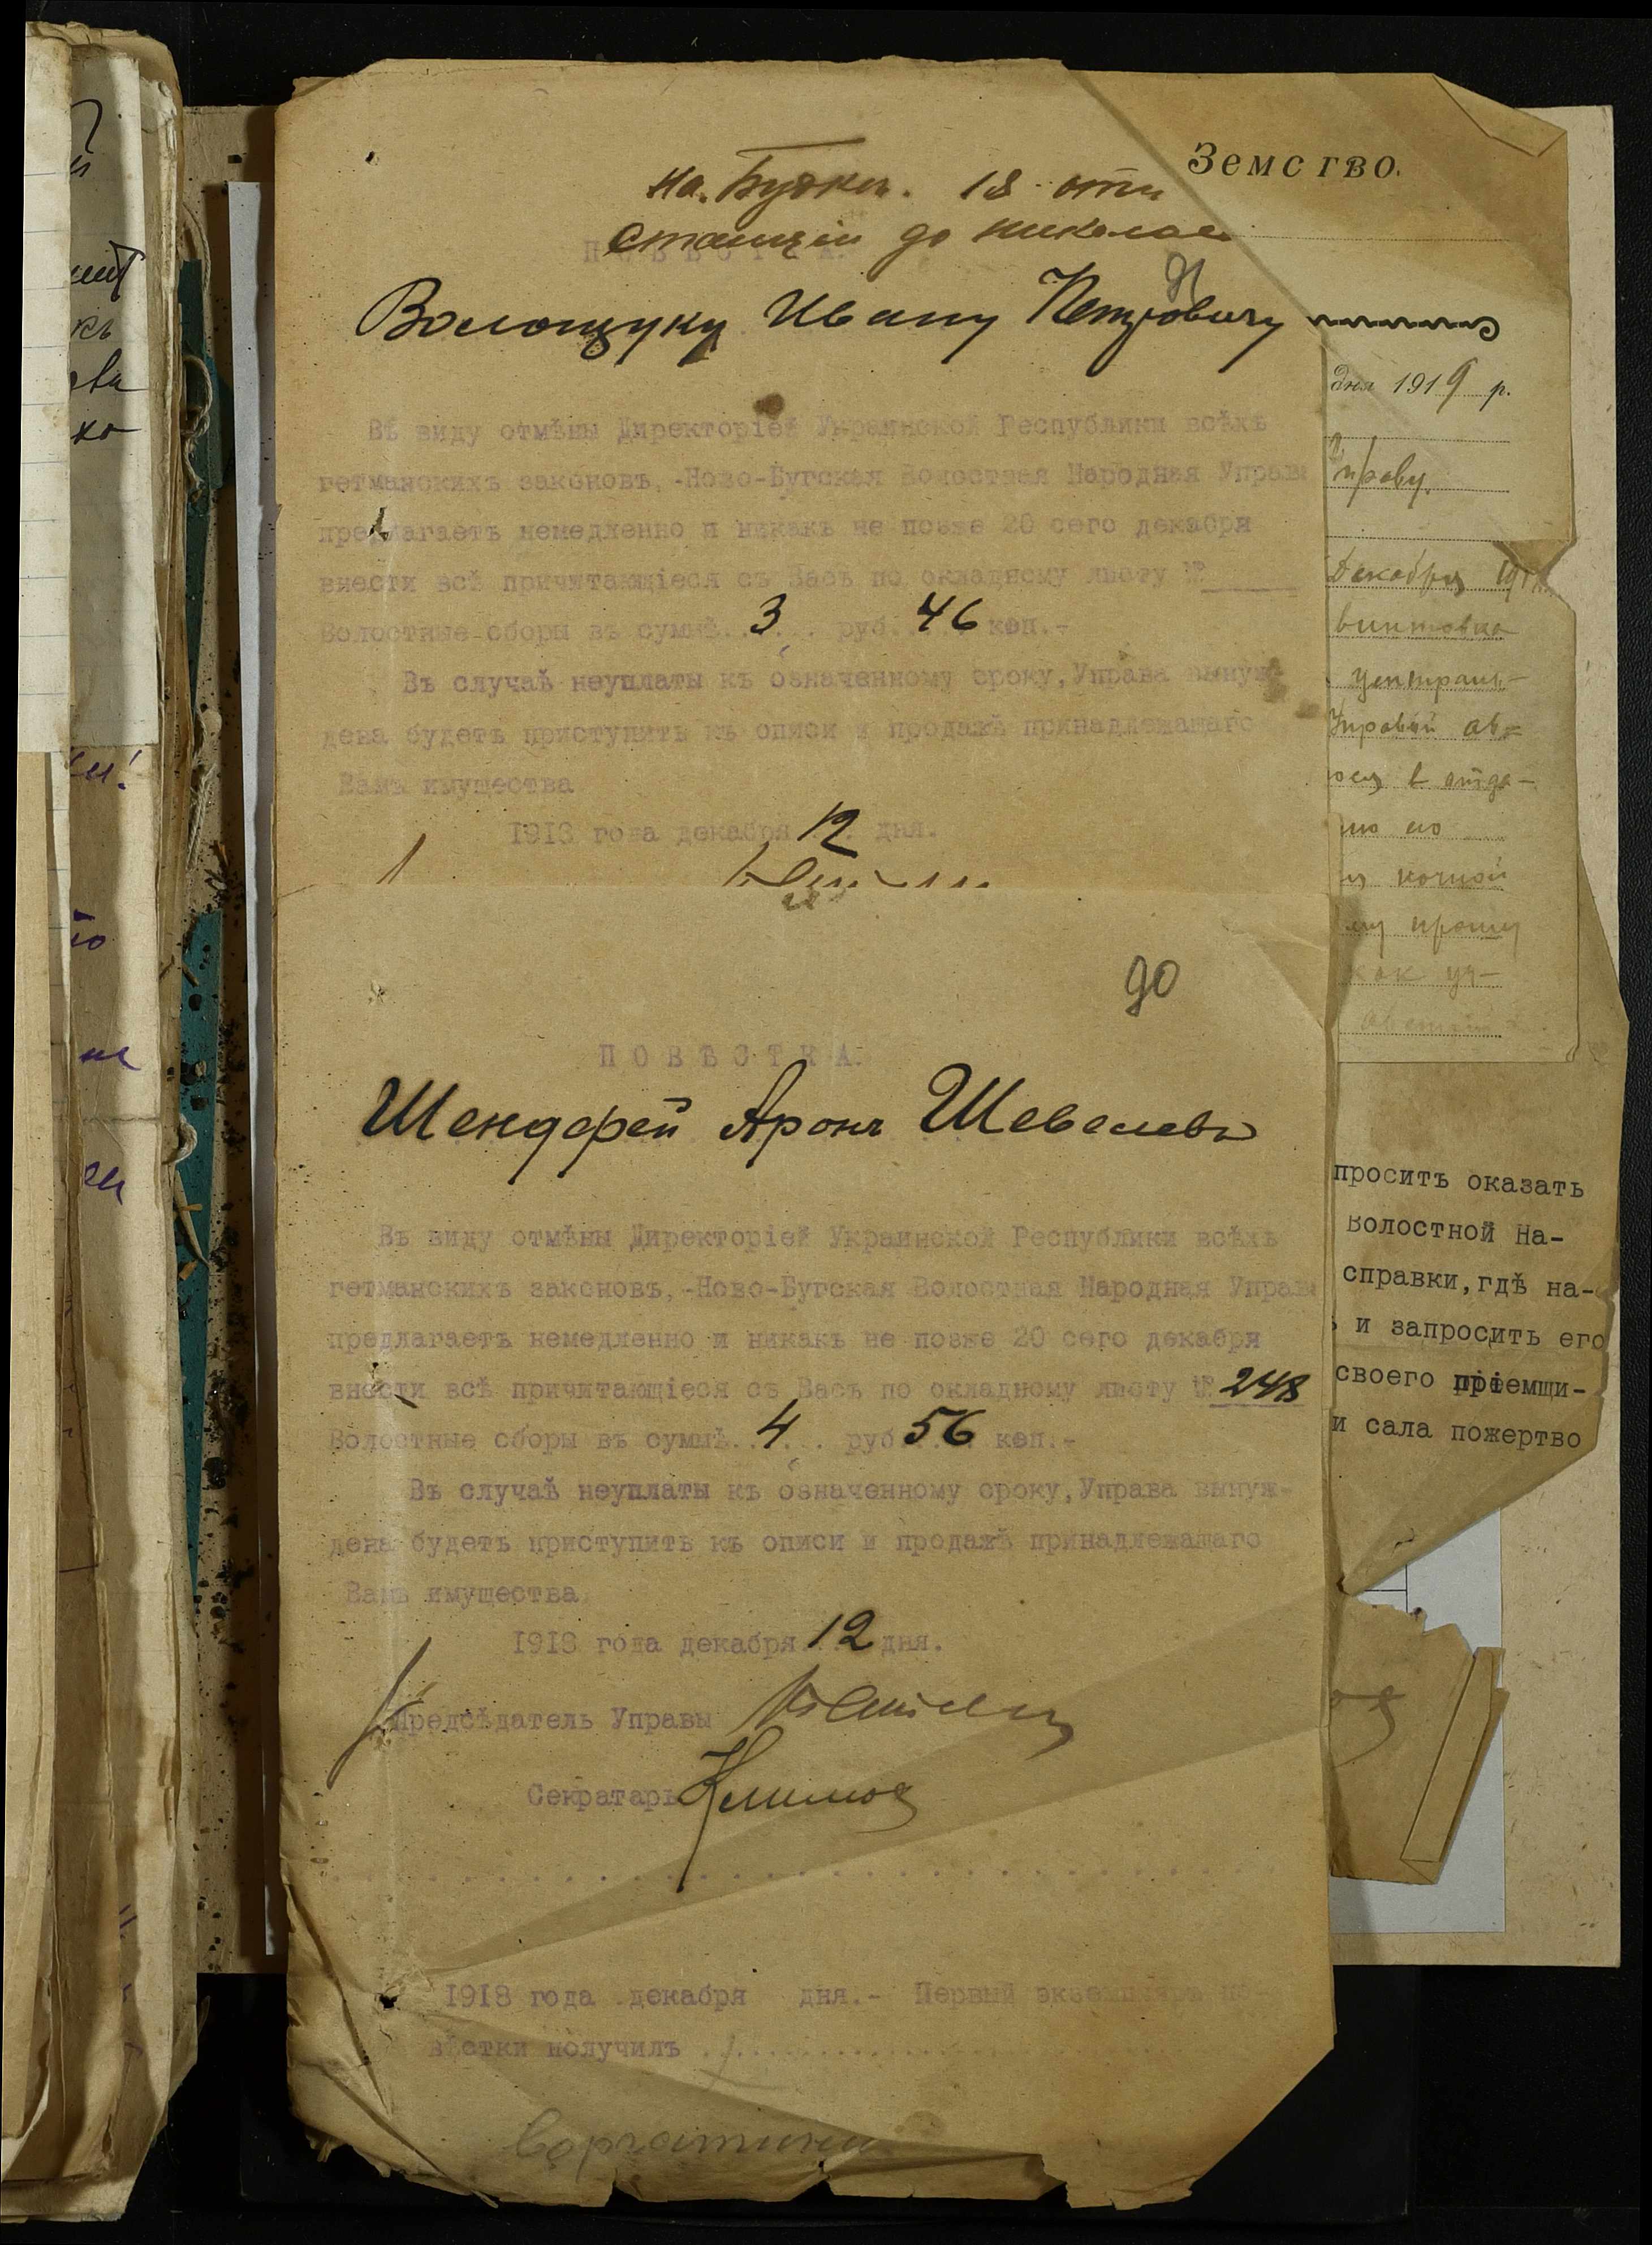 на Будки. 18 отъ
станціи до николае
ПОВѢСТКА.
91
Волощуку Ивану Петровичу
Въ виду отмѣны Директоріей Украинской Республики всѣхъ
гетманскихъ законовъ,-Ново-Бугская Волостная Народная Управа
предлагаетъ немедленно и никакъ не позже 20 сего декабря
внести всѣ причитающіеся съ Васъ по окладному листу №
Волостные сборы въ суммѣ...3... руб...46... коп.-
Въ случаѣ неуплаты къ означенному сроку,Управа вынуж-
дена будетъ приступить къ описи и продажѣ принадлежащаго
Вамъ имущества
1918 года декабря 12 дня.
90
ПОВѢСТКА.
Шендерей Аронъ Шевелевъ
Въ виду отмѣны Директоріей Украинской Республики всѣхъ
гетманскихъ законовъ,-Ново-Бугская Волостная Народная Управа
предлагаетъ немедленно и никакъ не позже 20 сего декабря
внести всѣ причитающіеся съ Васъ по окладному листу № 248
Волостные сборы въ суммѣ...4... руб 56 коп.-
Въ случаѣ неуплаты къ означенному сроку,Управа вынуж-
дена будетъ приступить къ описи и продажѣ принадлежащаго
Вамъ имущества
1918 года декабря 12 дня.
Предсѣдатель Управы
Секратарь Климов
1918 года декабря дня.- Первый экземпляръ по
вѣстки получилъ
Земство.
дня 1919 р.
Управу.
Декабря
винтовка
централь-
Управой
его
ночной
прошу
как
проситъ оказать
Волостной На-
справки,гдѣ на-
и запросить его
своего пріемщи-
и сала пожертво